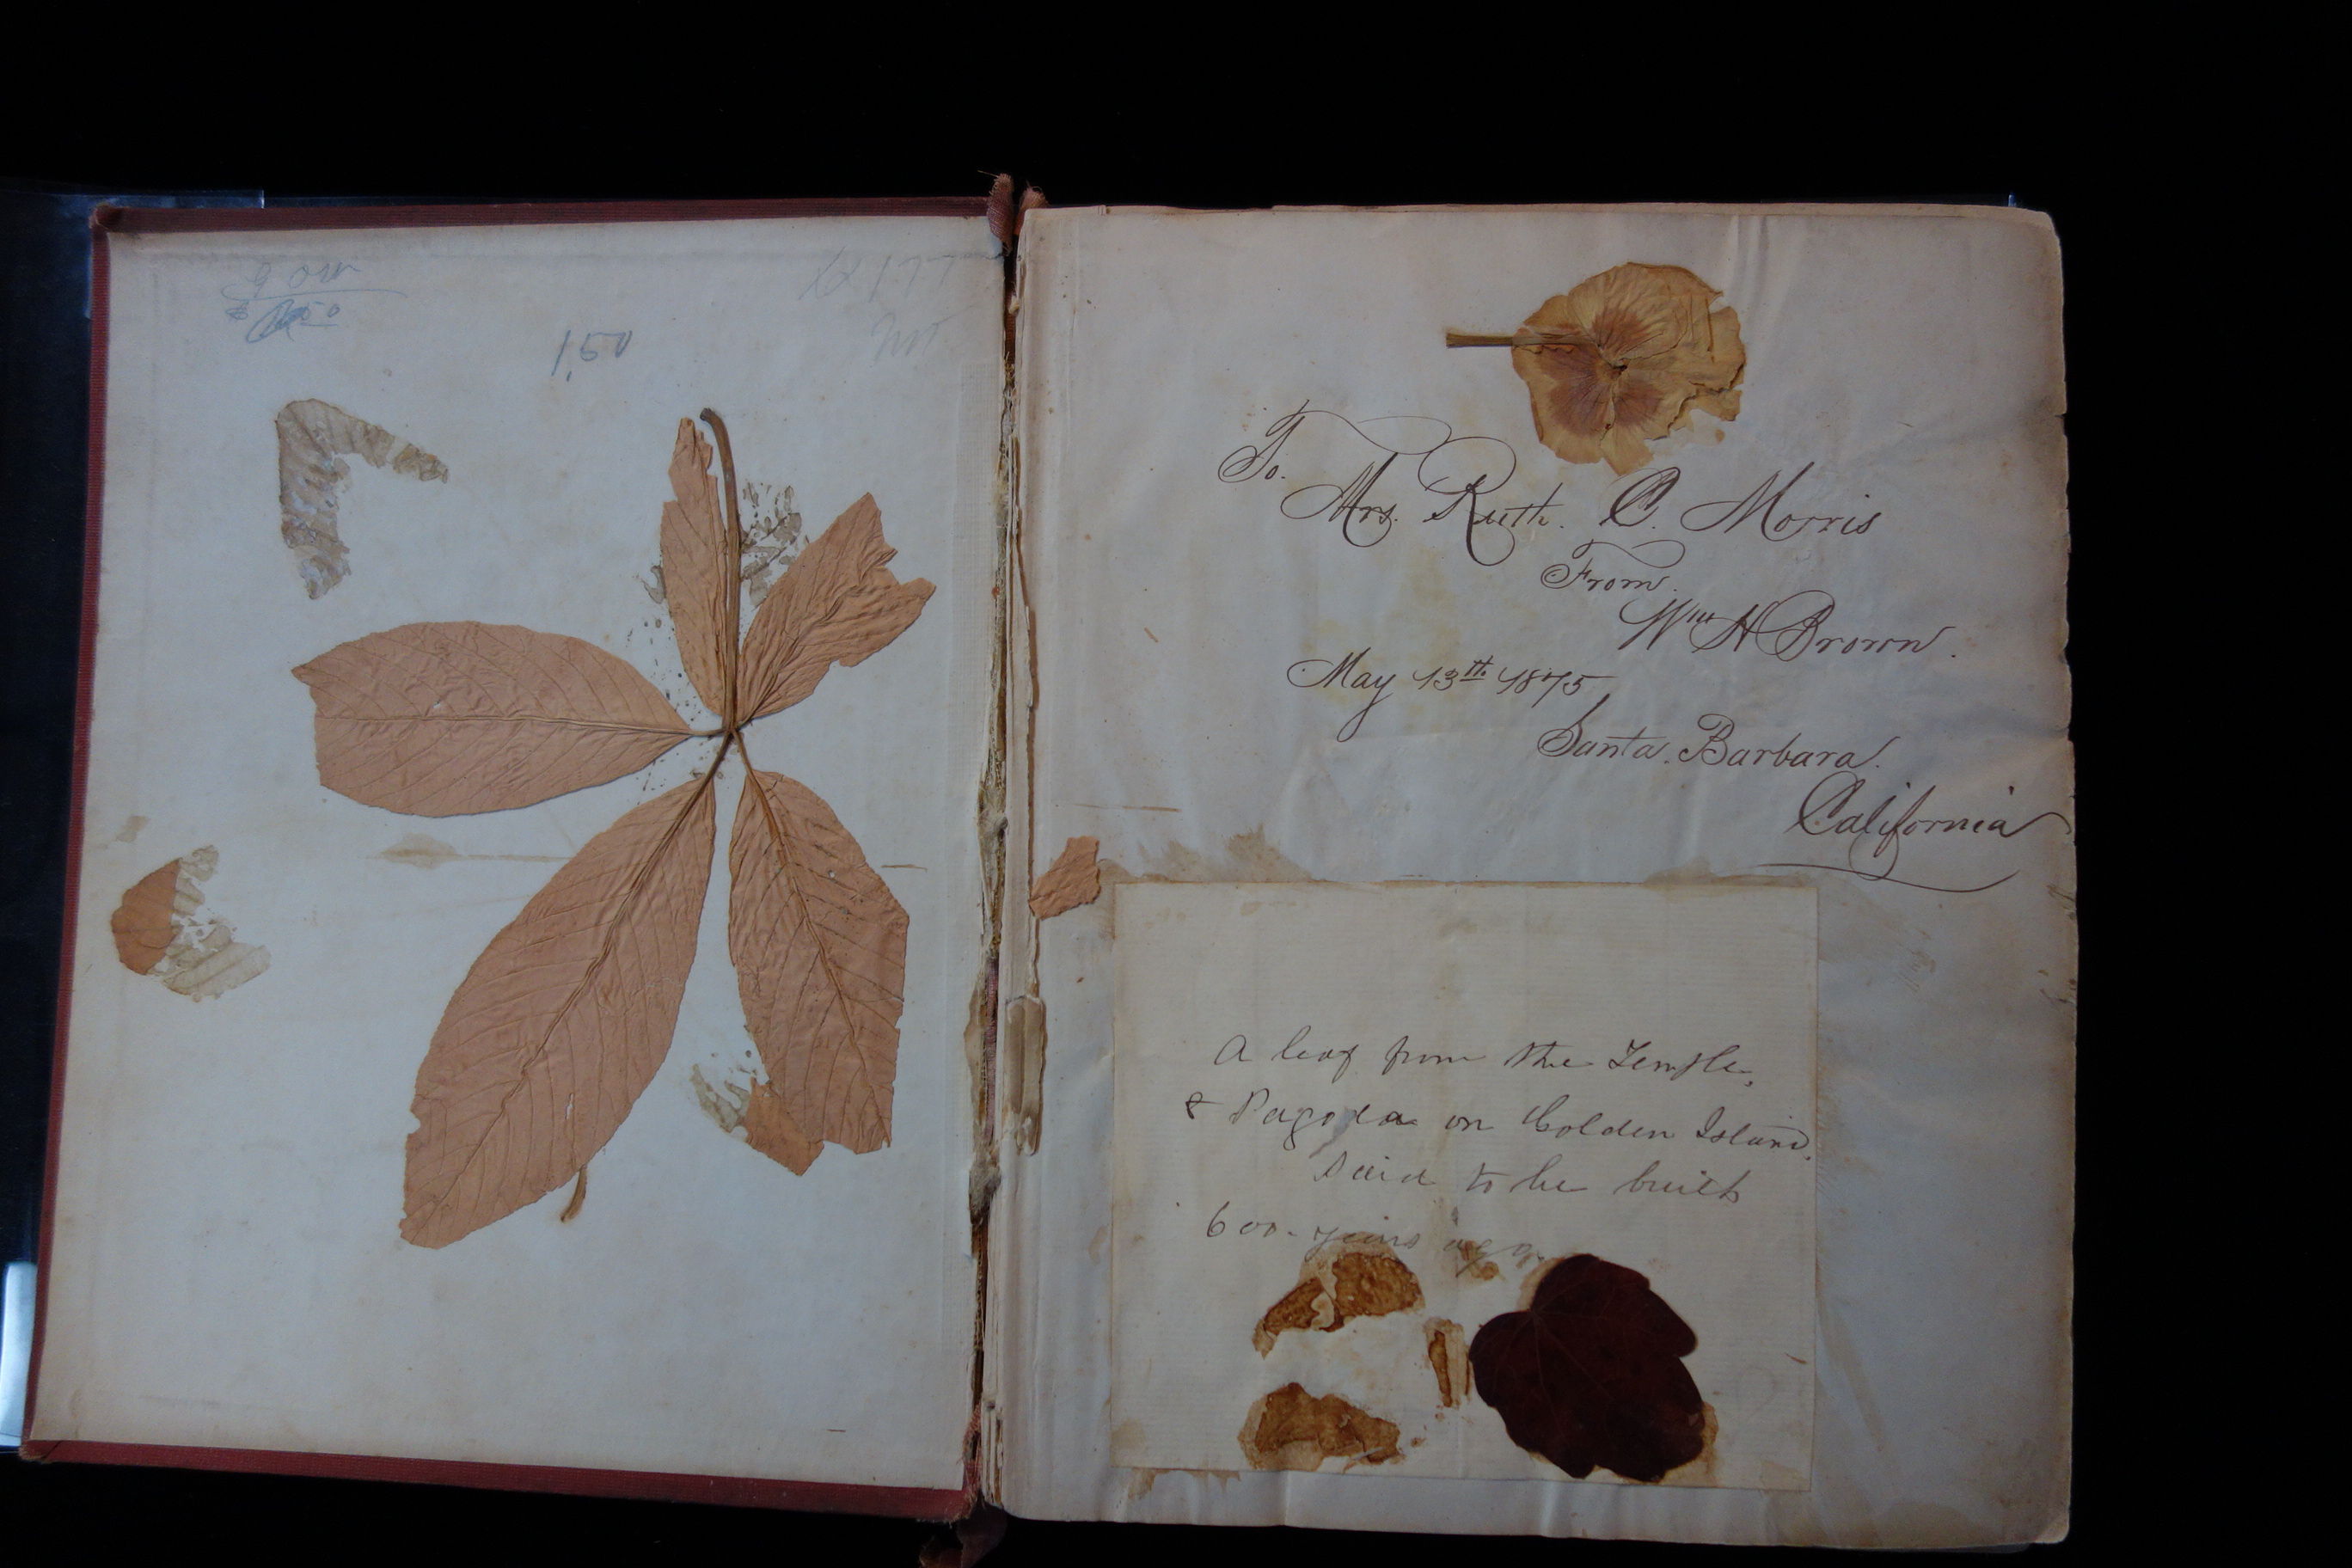 1.50
To.
Mrs. Ruth. C. Morris
From.
Wm H Brown.
May 13th. 1875
Santa. Barbara.
California
A leaf from the Temple,
& Pagoda on Golden Island.
Said to be built
600. years ago.